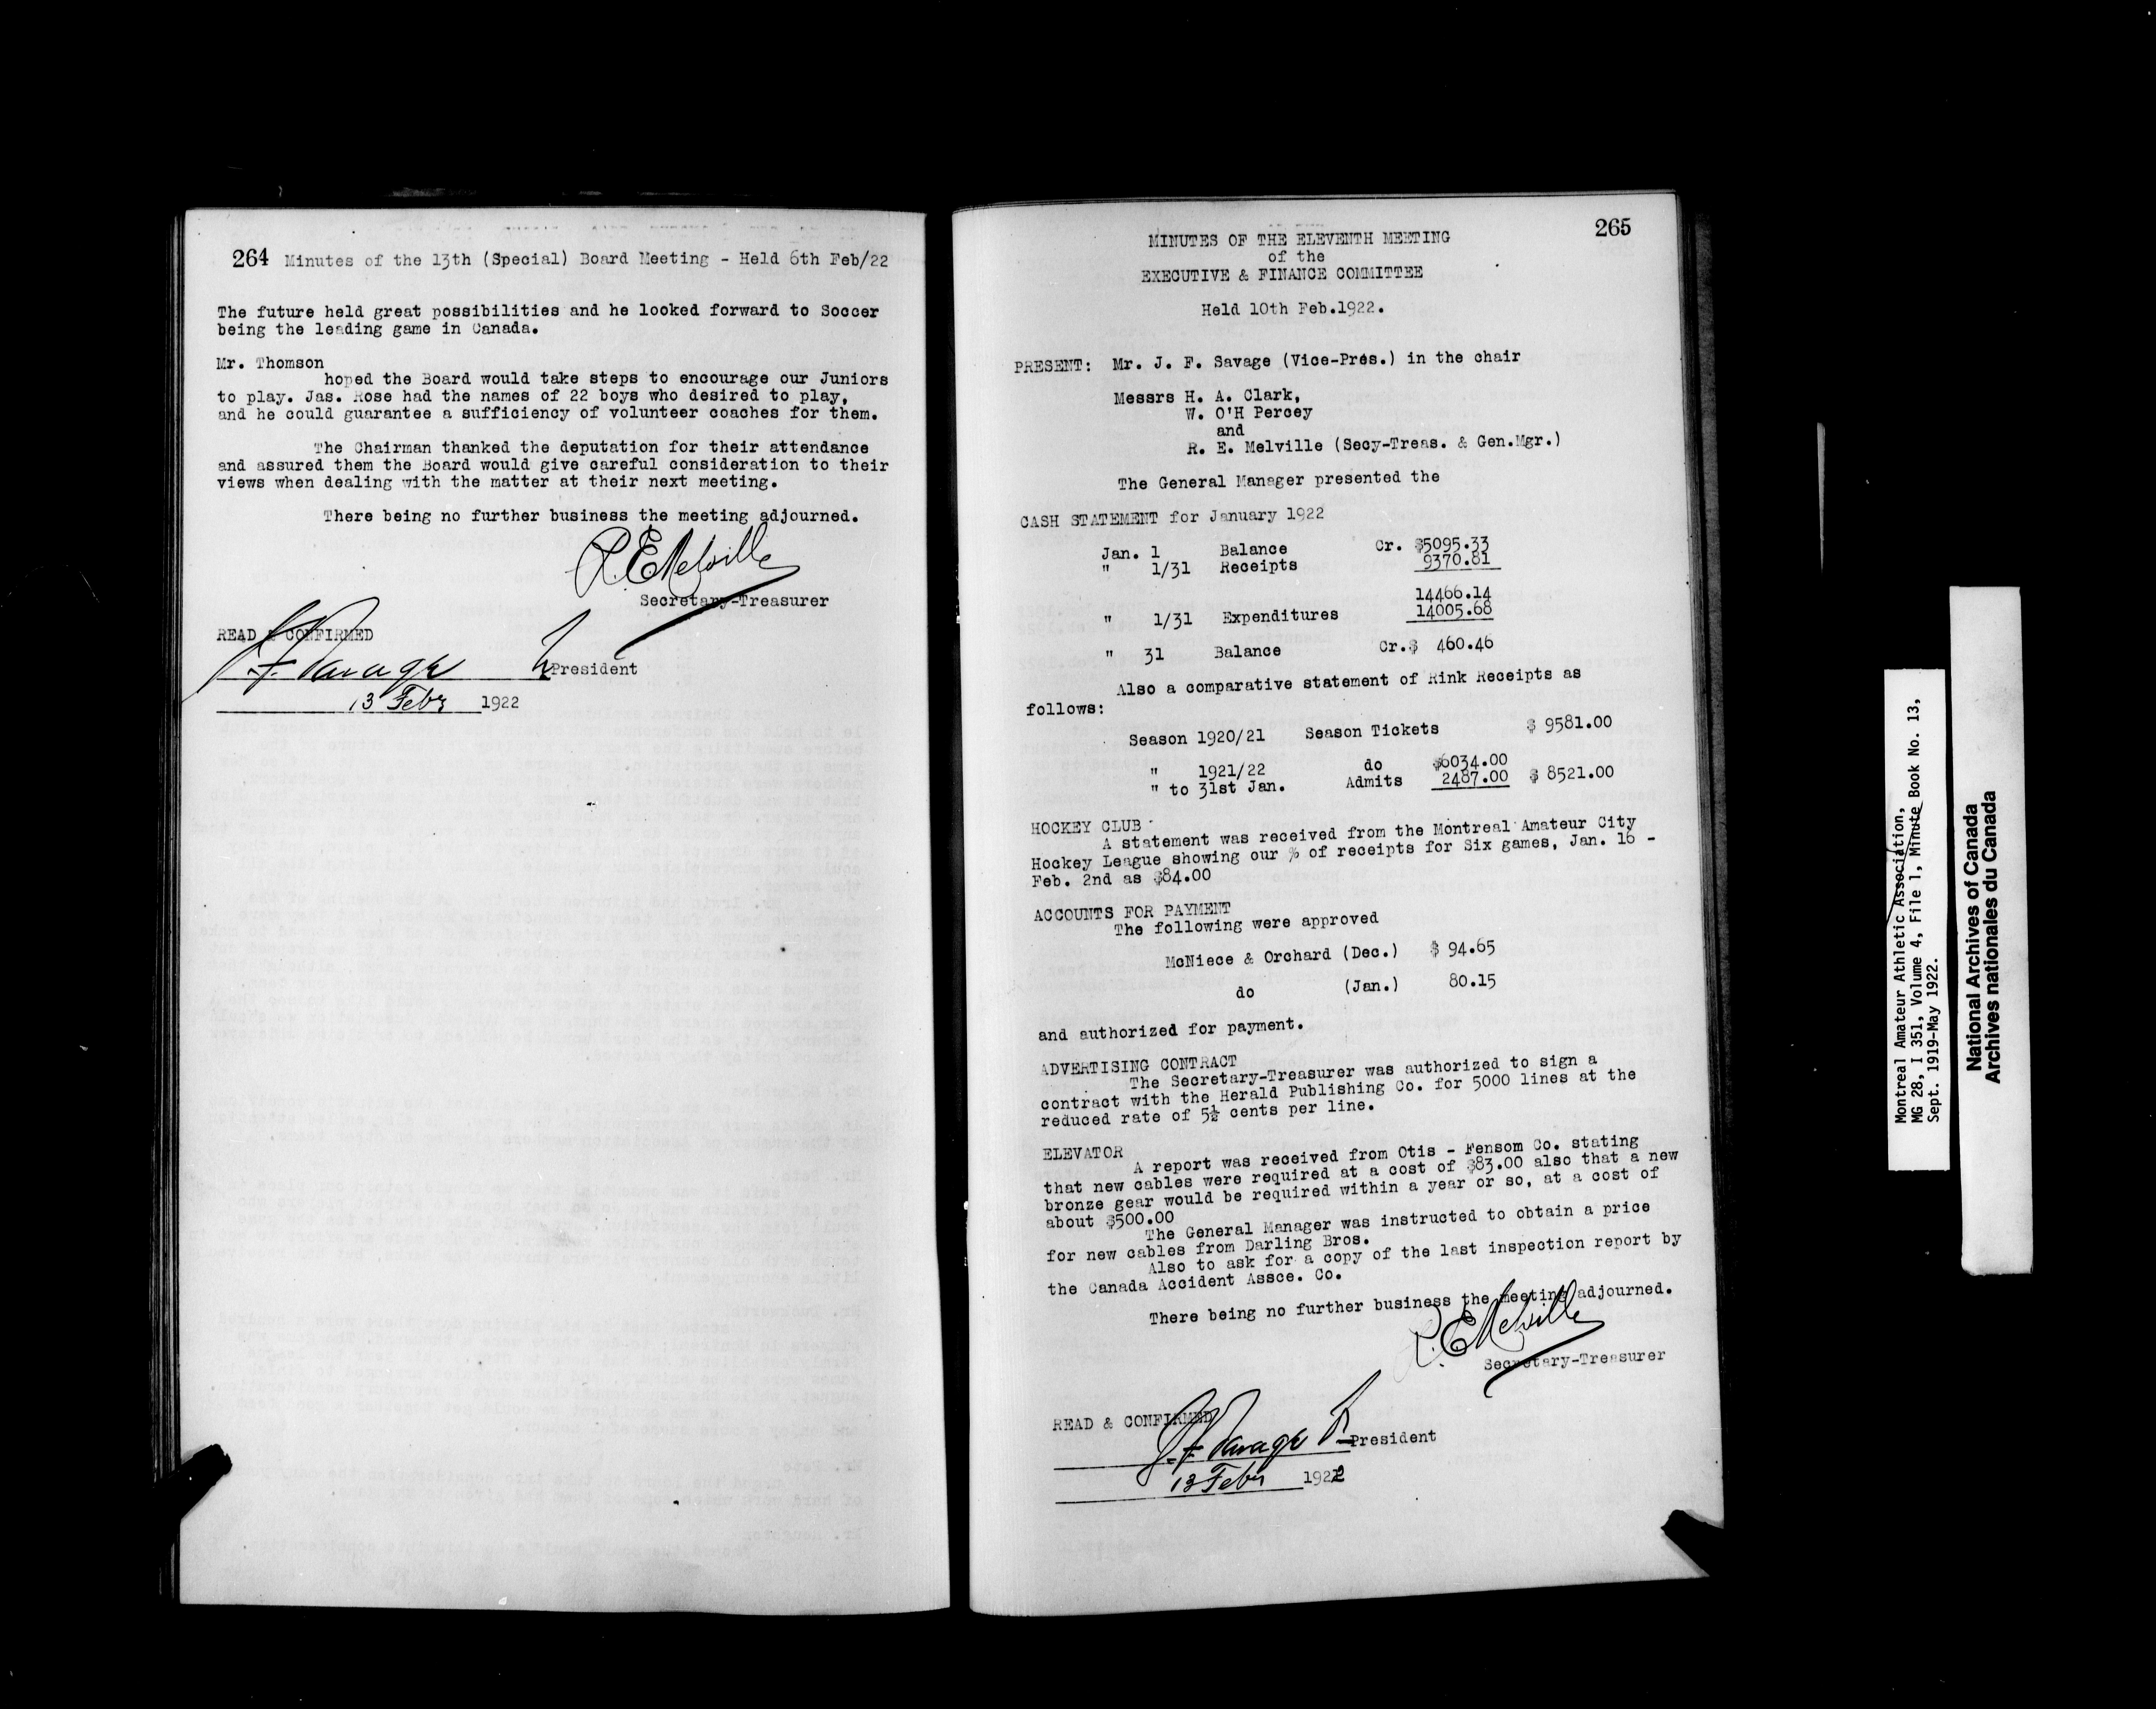 264 Minutes of the 13th (Special) Board Meeting - Held 6th Feb/22
The future held great possibilities and he looked forward to Soccer
being the leading game in Canada.
Mr. Thomson
hoped the Board would take steps to encourage our Juniors
to play. Jas. Rose had the names of 22 boys who desired to play,
and he could guarantee a sufficiency of volunteer coaches for them.
The Chairman thanked the deputation for their attendance
and assured them the Board would give careful consideration to their
views when dealing with the matter at their next meeting.
There being no further business the meeting adjourned.
R. E. Melville
Secretary-Treasurer
READ & CONFIRMED
J. F. Savage President
13 Feby 1922
265
MINUTES OF THE ELEVENTH MEETING
of the
EXECUTIVE & FINANCE COMMITTEE
Held 10th Feb.1922.
PRESENT: Mr. J. F. Savage (Vice-Pres.) in the chair
Messrs H. A. Clark,
W. O'H Percey
and
R. E. Melville (Secy-Treas. & Gen.Mgr.)
The General Manager presented the
CASH STATEMENT for January 1922
Jan. 1 Balance Cr. $5095.33
" 1/31 Receipts 9370.81
14466.14
" 1/31 Expenditures 14005.68
" 31 Balance Cr.$ 460.46
Also a comparative statement of Rink Receipts as
follows:
Season 1920/21 Season Tickets $ 9581.00
" 1921/22 do $6034.00
" to 31st Jan. Admits 2487.00 $ 8521.00
HOCKEY CLUB
A statement was received from the Montreal Amateur City
Hockey League showing our % of receipts for Six games, Jan. 16 -
Feb. 2nd as $84.00
ACCOUNTS FOR PAYMENT
The following were approved
McNiece & Orchard (Dec.) $ 94.65
do (Jan.) 80.15
and authorized for payment.
ADVERTISING CONTRACT
The Secretary-Treasurer was authorized to sign a
contract with the Herald Publishing Co. for 5000 lines at the
reduced rate of 5½ cents per line.
ELEVATOR
A report was received from Otis - Fensom Co. stating
that new cables were required at a cost of $83.00 also that a new
bronze gear would be required within a year or so, at a cost of
about $500.00
The General Manager was instructed to obtain a price
for new cables from Darling Bros.
Also to ask for a copy of the last inspection report by
the Canada Accident Assce. Co.
There being no further business the meeting adjourned.
R. E. Melville
Secretary-Treasurer
READ & CONFIRMED
J. F. Savage President
13 Feby 1922
Montreal Amateur Athletic Association,
MG 28, I 351, Volume 4, File 1, Minute Book No. 13,
Sept. 1919-May 1922.
National Archives of Canada
Archives nationales du Canada